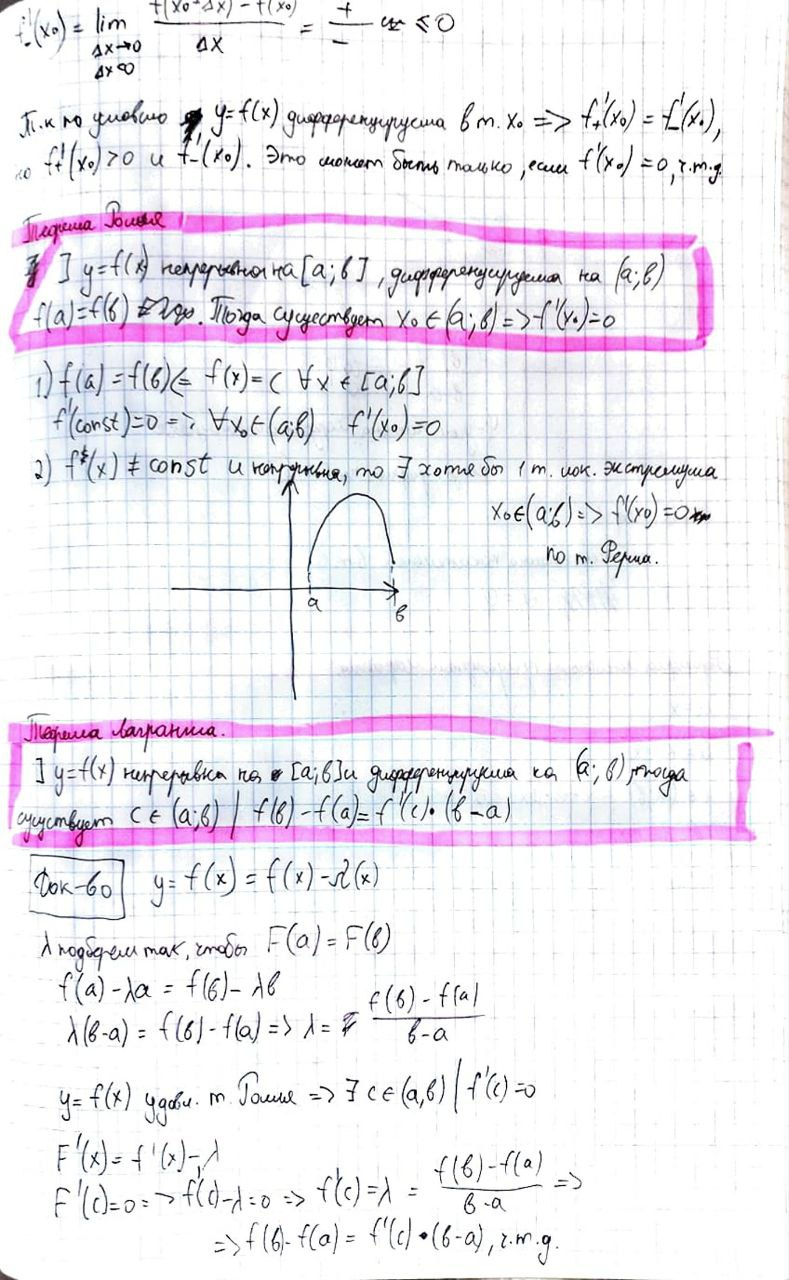 f'₋(x₀) = lim f(x₀-Δx) - f(x₀) / Δx = + / - ≤ 0
Δx→0
Δx<0
Т.к по условию y=f(x) дифференцируема в т. x₀ => f'₊(x₀) = f'₋(x₀),
но f'₊(x₀) >0 и f'₋(x₀). Это может быть только, если f'(x₀) = 0, ч.т.д.
Теорема Ролля
] y=f(x) непрерывна на [a;b], дифференцируема на (a;b)
f(a)=f(b). Тогда существует x₀ ∈ (a;b) => f'(x₀)=0
1) f(a) = f(b) <= f(x) = C ∀x ∈ [a;b]
f'(const)=0 => ∀x₀∈(a;b) f'(x₀)=0
2) f(x) ≠ const и непрерывна, то ∃ хотя бы 1 т. лок. экстремума
x₀∈(a;b)=> f'(x₀)=0
по т. Ферма.
a
b
Теорема Лагранжа.
] y=f(x) непрерывна на [a;b] и дифференцируема на (a;b), тогда
существует c ∈ (a;b) | f(b) - f(a) = f'(c)·(b-a)
Док-во y = f(x) = f(x) - λ(x)
λ подберем так, чтобы F(a) = F(b)
f(a) - λa = f(b) - λb
λ(b-a) = f(b) - f(a) => λ = f(b) - f(a) / b-a
y= f(x) удовл. т. Ролля => ∃ c∈(a,b) | f'(c)=0
F'(x) = f'(x) - λ
F'(c)=0 => f'(c)-λ=0 => f'(c) = λ = f(b)-f(a) / b-a =>
=> f(b)-f(a) = f'(c)·(b-a), ч.т.д.